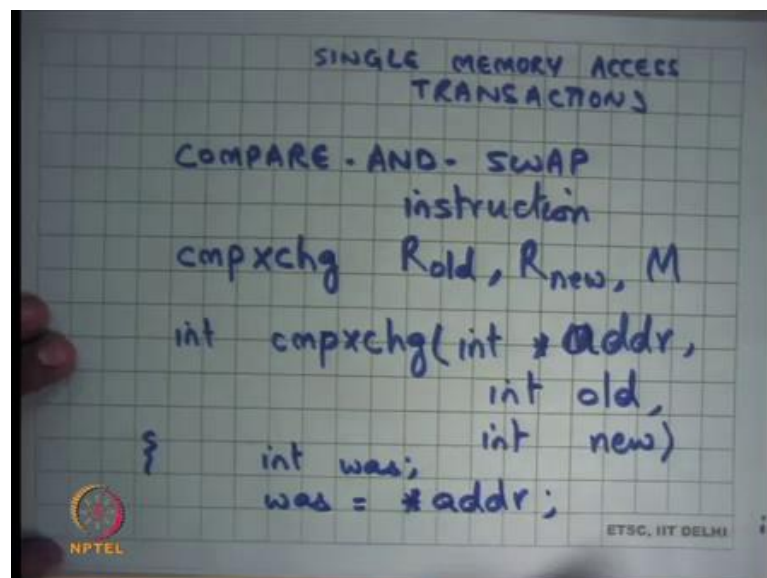 SINGLE MEMORY ACCESS
TRANSACTIONS
COMPARE-AND-SWAP
instruction
cmpxchg Rold, Rnew, M
int cmpxchg(int *addr,
int old,
int new)
{ int was;
was = *addr;
ETSC, IIT DELHI
NPTEL